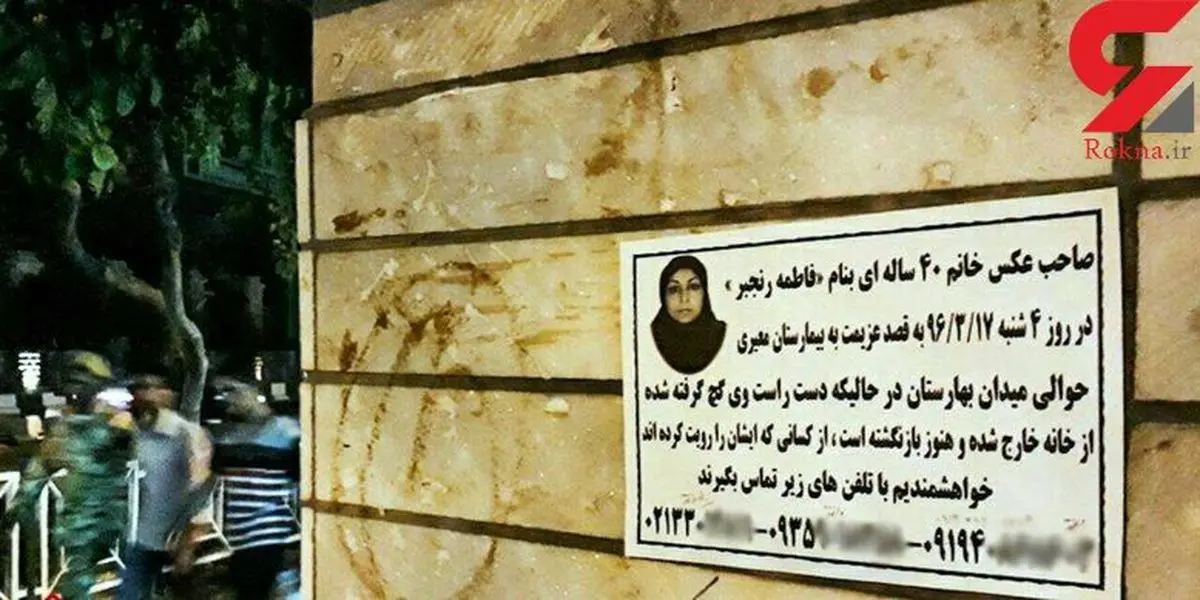 Rokna.ir
صاحب عکس خانم ۴۰ ساله ای بنام «فاطمه رنجبر»
در روز ۴ شنبه ۹۶/۳/۱۷ به قصد عزیمت به بیمارستان معیری
حوالی میدان بهارستان در حالیکه دست راست وی گچ گرفته شده
از خانه خارج شده و هنوز بازنگشته است ، از کسانی که ایشان را رویت کرده اند
خواهشمندیم با تلفن های زیر تماس بگیرند
۰۲۱۳۳ -۰۹۳۵ -۰۹۱۹۴